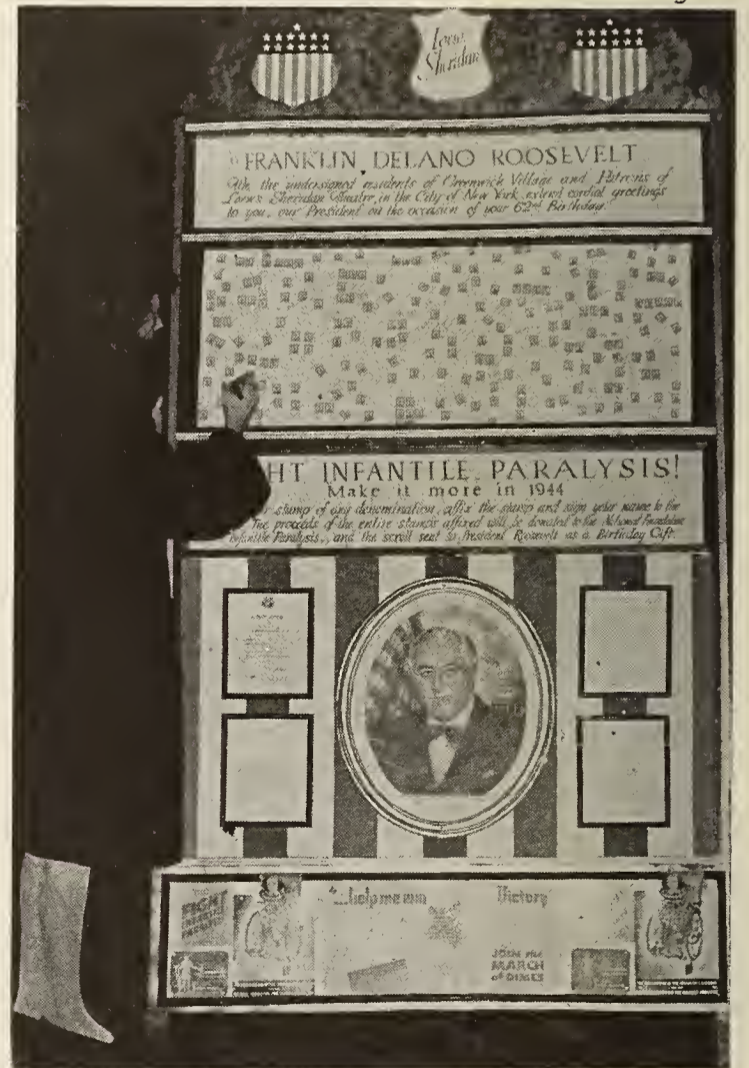 Loew's
Sheridan
FRANKLIN DELANO ROOSEVELT
We, the undersigned residents of Greenwich Village and Patrons of
Loew's Sheridan Theatre, in the City of New York, extend cordial greetings
to you, our President on the occasion of your 62nd Birthday.
HT INFANTILE PARALYSIS!
Make it more in 1944
stamp of any denomination, affix the stamp and sign your name to the
The proceeds of the entire stamps affixed will be donated to the National Foundation
Infantile Paralysis, and the scroll sent to President Roosevelt as a Birthday Gift.
FIGHT
INFANTILE
PARALYSIS
"...help me win
Victory
JOIN the
MARCH
of DIMES